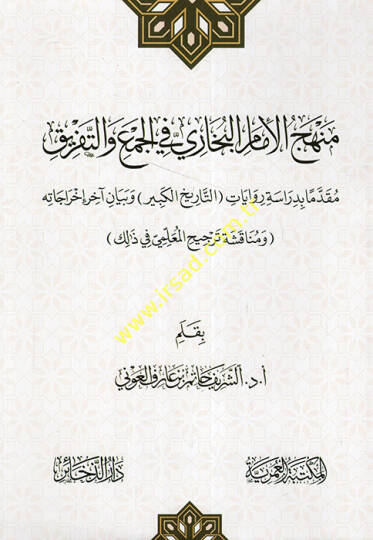 منهج الإمام البخاري في الجمع والتفريق
مُقَدَّمًا بِدِرَاسَةِ رِوَايَاتِ (التَّارِيخِ الكَبِيرِ) وَبَيَانِ آخِرِ إِخْرَاجَاتِهِ
(وَمُنَاقَشَةِ تَرْجِيحِ المُعَلِّمِيِّ فِي ذَلِكَ)
بِقَلَمِ
أ.د. الشريف حاتم بن عارف العوني
المكتبة العمرية
دار الذخائر
www.irsad.com.tr